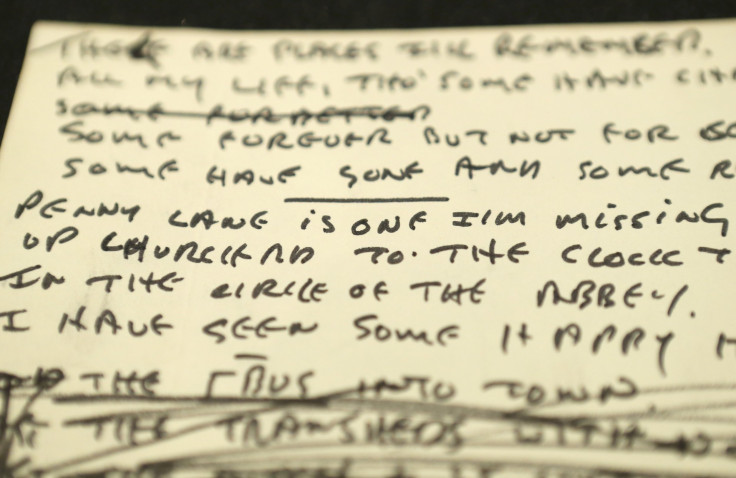 THERE ARE PLACES ILL REMEMBER.
ALL MY LIFE, THO' SOME HAVE CH
SOME FORBETTER
SOME FOREVER BUT NOT FOR
SOME HAVE GONE AND SOME R
PENNY LANE is ONE I'M MiSSiNG
UP CHURCH RD TO THE CLOCK T
IN THE CIRCLE OF THE ABBEY.
I HAVE SEEN SOME HAPPY H
THE BUS INTO TOWN
THE TRAMSHEDS WITH